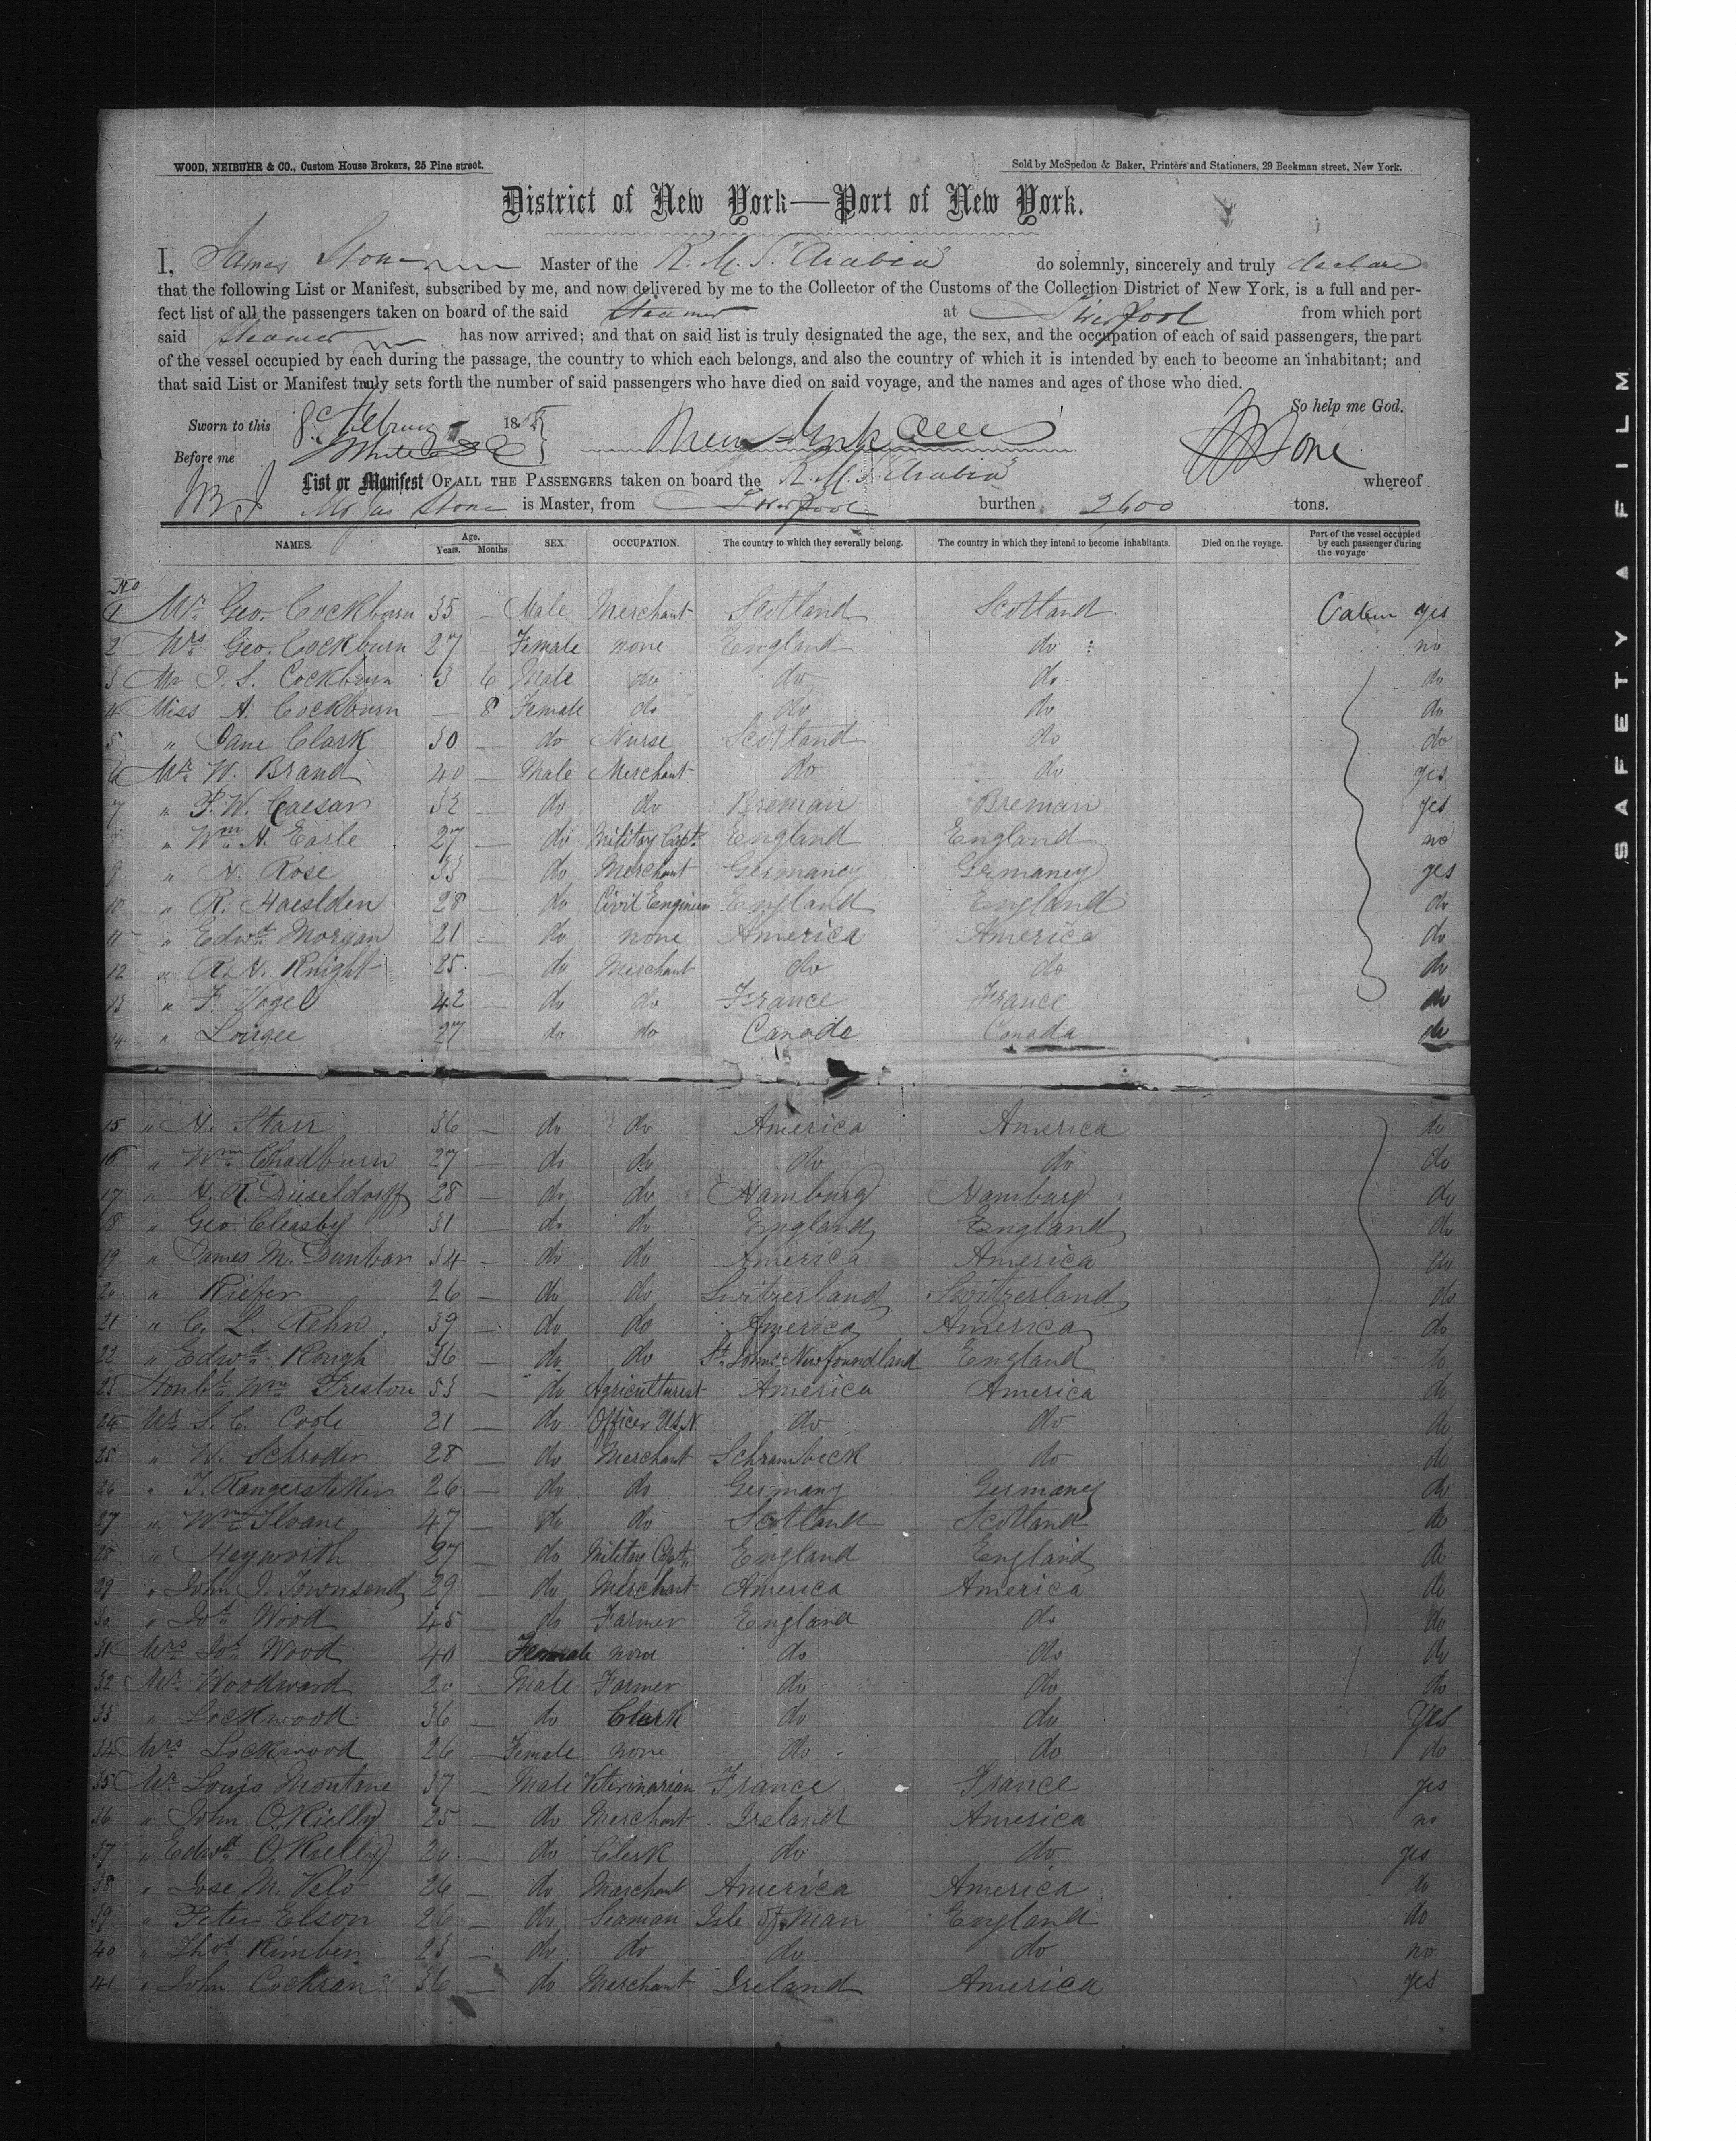 WOOD, NEIBUHR & CO., Custom House Brokers, 25 Pine street.
Sold by McSpedon & Baker, Printers and Stationers, 29 Beekman street, New York.
District of New York—Port of New York.
I, James Stone Master of the R. M. S. "Arabia" do solemnly, sincerely and truly declare
that the following List or Manifest, subscribed by me, and now delivered by me to the Collector of the Customs of the Collection District of New York, is a full and per-
fect list of all the passengers taken on board of the said Steamer at Liverpool from which port
said Steamer has now arrived; and that on said list is truly designated the age, the sex, and the occupation of each of said passengers, the part
of the vessel occupied by each during the passage, the country to which each belongs, and also the country of which it is intended by each to become an inhabitant; and
that said List or Manifest truly sets forth the number of said passengers who have died on said voyage, and the names and ages of those who died.
So help me God.
Sworn to this 8 185
Before me
List or Manifest OF ALL THE PASSENGERS taken on board the R. M. S. "Arabia" whereof
Mr Jas Stone is Master, from Liverpool burthen 2600 tons.
NAMES. Age. Years. Months SEX. OCCUPATION. The country to which they severally belong. The country in which they intend to become inhabitants. Died on the voyage. Part of the vessel occupied by each passenger during the voyage
No
1 Mr. Geo. Cockburn 35 — Male Merchant Scotland Scotland Cabin yes
2 Mrs Geo. Cockburn 27 Female none England do no
3 Mr J. S. Cockburn 3 6 Male do do do do
4 Miss A. Cockburn — 8 Female do do do do
5 " Jane Clark 30 — do Nurse Scotland do do
6 Mr. W. Brand 40 — Male Merchant do do yes
7 " F. W. Caesar 32 — do do Breman Breman yes
8 " Wm H. Earle 27 — do Military Capt. England England no
9 " H. Rose 33 — do Merchant Germaney Germaney yes
10 " R. Haeslden 28 — do Civil Enginier England England do
11 " Edwd Morgan 21 — do none America America do
12 " R. H. Knight 25 — do Merchant do do do
13 " F. Vogel 42 — do do France France do
14 " Lougee 27 do do Canada Canada do
15 " H. Starr 36 — do do America America do
16 " Wm Chadburn 27 — do do do do do
17 " H. R. Dieseldorff 28 — do do Hamburg Hamburg do
18 " Geo. Cleasby 31 do do England England do
19 " James M. Dunbar 34 — do do America America do
20 " Riefer 26 — do do Switzerland Switzerland do
21 " C. L. Rehn 39 — do do America America do
22 " Edwd Rough 36 — do do St. Johns Newfoundland England do
23 Honble Wm Preston 53 — do Agriculturist America America do
24 Mr S. C. Coole 21 — do Officer U.S.N do do do
25 " W. Schroder 28 — do Merchant Schrambeck do do
26 " 26 — do do Germany Germany do
27 " Wm Sloane 47 — do do Scotland Scotland do
28 " Heyworth 27 — do Military Capt. England England do
29 " John J. Townsend 29 — do Merchant America America do
30 " Jos. Wood 45 — do Farmer England do do
31 Mrs Jos. Wood 40 Female none do do do
32 Mr. Woodward 20 — Male Farmer do do do
33 " Lockwood 36 — do Clark do do Yes
34 Mrs Lockwood 26 — Female none do do do
35 Mr. Louis Montane 37 — Male Veterinarian France France yes
36 " John O'Rielly 25 — do Merchant Ireland America no
37 " Edwd O'Rielly 20 — do Clerk do do yes
38 " Jose M. Velo 26 — do Marchant America America do
39 " Peter Elson 26 — do Seaman Isle of Man England do
40 " Thos Rimben 23 — do do do do no
41 " John Cockran 36 — do Merchant Ireland America yes
SAFETY A FILM